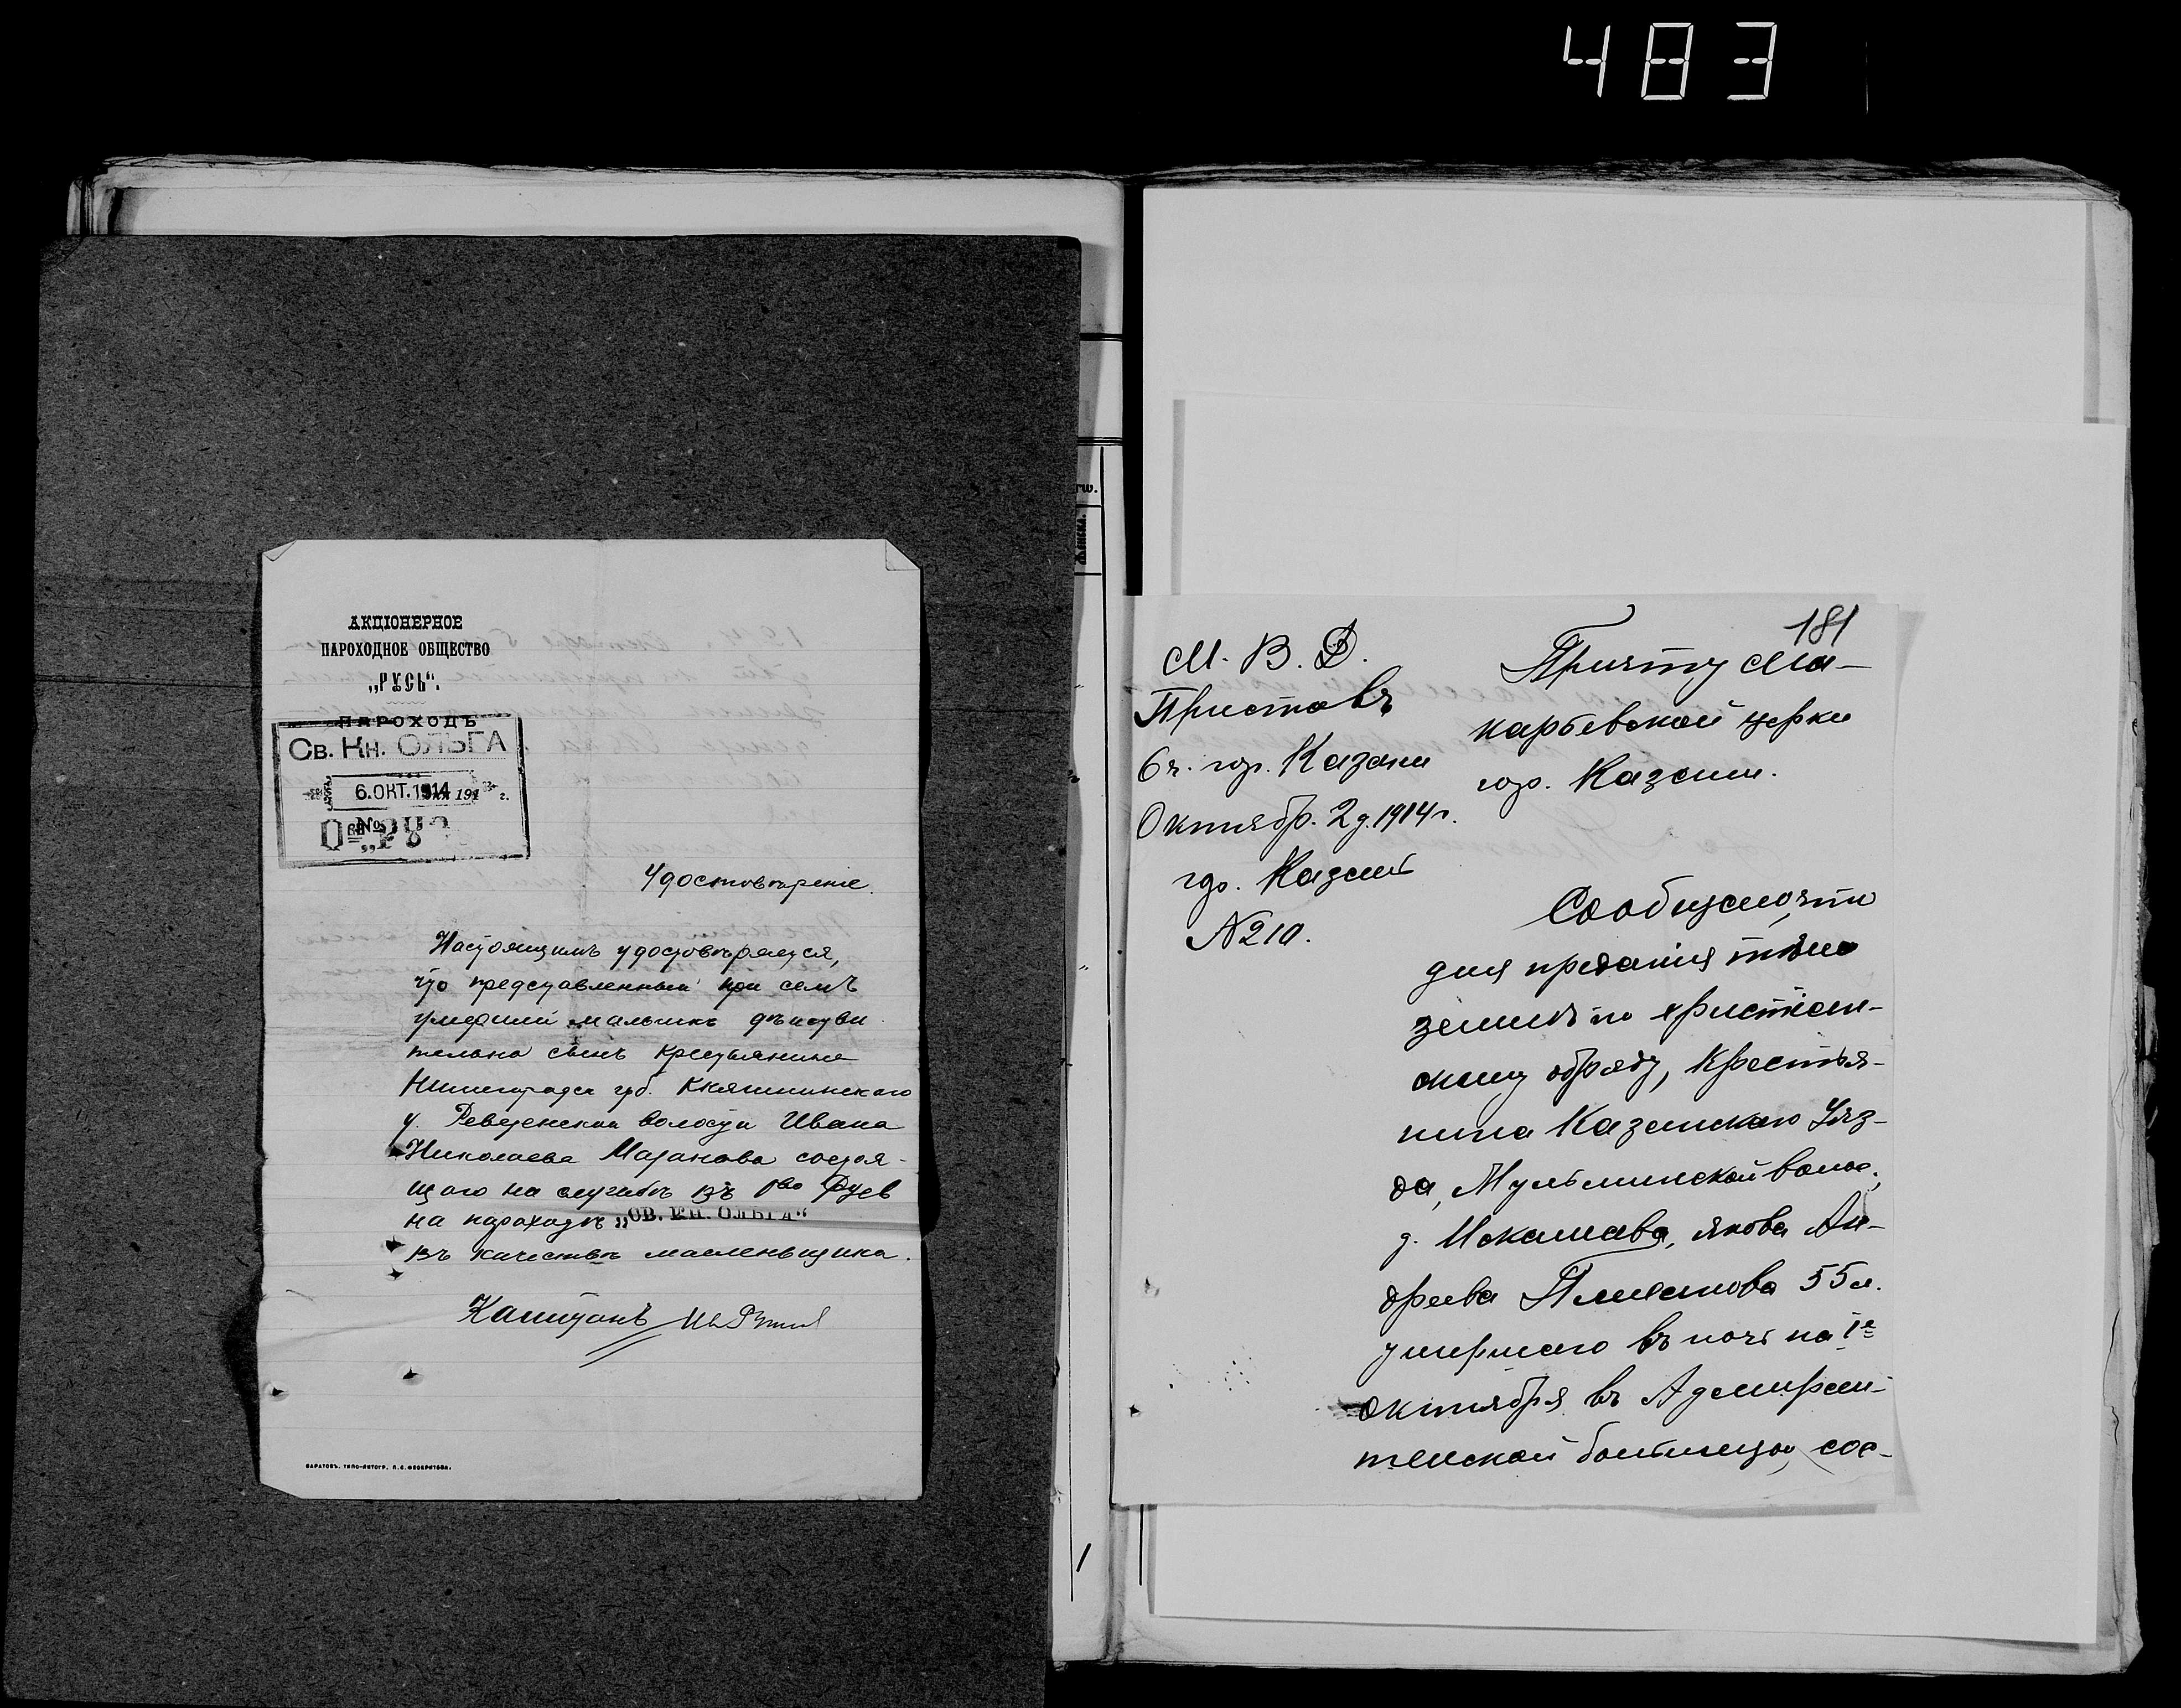 483
АКЦIОНЕРНОЕ
ПАРОХОДНОЕ ОБЩЕСТВО
„РУСЬ“.
ПАРОХОДЪ
Св. Кн. ОЛЬГА
6.ОКТ.1914 191 г.
№
Удостовѣренiе.
Настоящимъ удостовѣряется,
что представленный при семъ
умершiй мальчикъ дѣйстви
тельно сынъ крестьянина
губ. Княгининскаго
у. волости Ивана
Николаева Мазанова состоя-
щаго на службѣ въ О-во Русь
на пароходѣ „СВ. КН. ОЛЬГА“
въ качествѣ масленьщика.
Капитанъ
САРАТОВЪ. ТИПО-ЛИТОГР. П.С.ФЕОКРИТОВА.
181
М. В. Д.
Приставъ
6 ч. гор. Казани
Октябр. 2 д. 1914 г.
гор. Казань
№ 210.
Причту Ма-
карьевской церкви
гор. Казани.
Сообщаю, что
для преданiя тѣла
землѣ по христiан-
скому обряду, крестья-
нина Казанскаго Уѣз-
да, Мульминской волос.,
д. Якова Ан-
дреева 55 л.
умершаго въ ночь на 1е
октября въ Адмирал-
тейской больницы, сос-